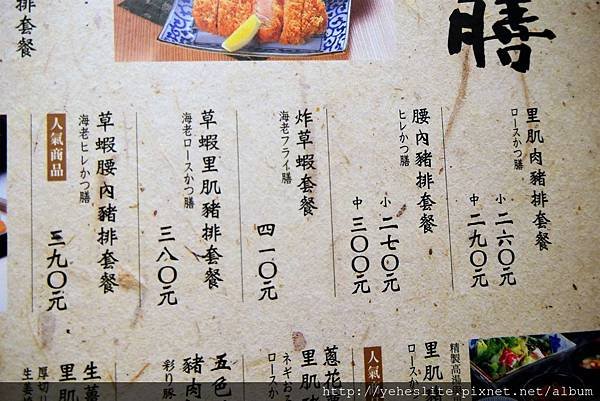 膳
里肌肉豬排套餐
ロースかつ膳
小 二六〇元
中 二九〇元
腰內豬排套餐
ヒレかつ膳
小 二七〇元
中 三〇〇元
炸草蝦套餐
海老フライ膳
四一〇元
草蝦里肌豬排套餐
海老ロースかつ膳
三八〇元
草蝦腰內豬排套餐
海老ヒレかつ膳
人氣商品
三九〇元
排套餐
精製高湯
里肌
ロースか
人氣
蔥花
里肌
ネギおろ
ロースか
五色
豬肉
彩り豚
生薑
里肌
厚切り
生姜
http://yeheslite.pixnet.net/album